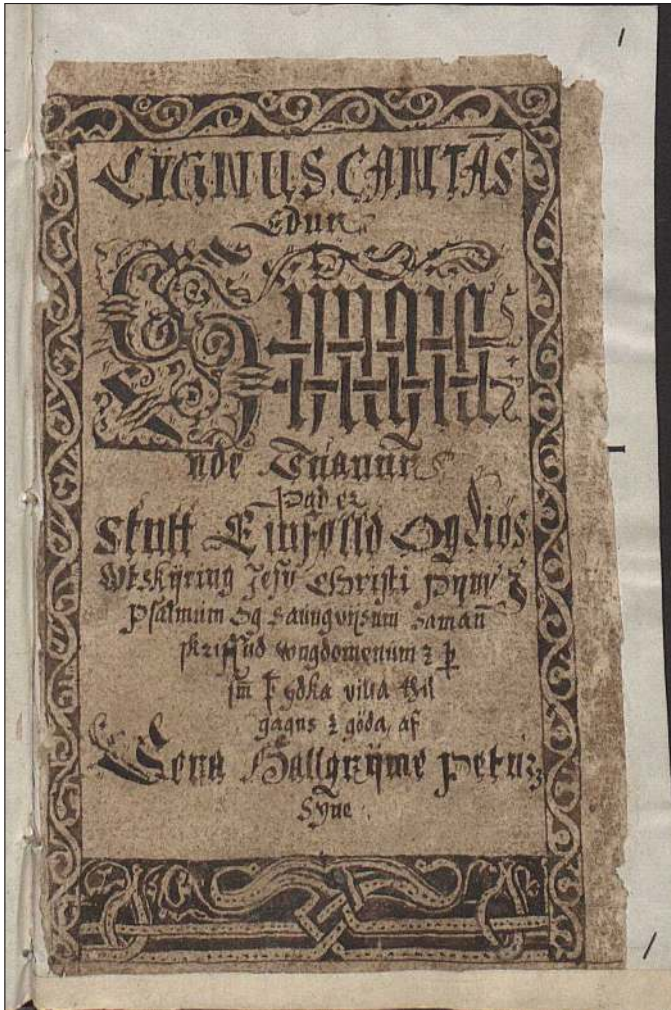 1
CYGNUS CANTĀS
Edur
Syngia
nde Suanur
Það er
Stutt Einfølld Og Liös
Wtskijring Jesu Christi Pijnu j
Psalmum Og Saungvijsum Saman̄
skriffud ungdomenum ꝛ þ̄
sm̄ ꝼ ydka vilia thil
gagns ꝛ góda, af
Sera Hallgrijme Peturz
Syne
1